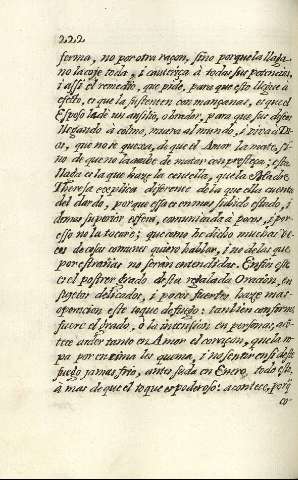 222
forma, no por otra raçon, sino porque la llaga
no la coje toda, i cauteriça à todas sus potencias,
i assi el remedio, que pide, para que esto llegue à
efecto, es que la sustenten con mançanas, es que el
Esposo la dè un ansilio, o tradox, para que sus
llegando à colmo, muera al mundo, i viva à Di-
os, que no se quexa, de que el Amor la mate, si-
no de que no la acabe de matar con presteça; esta
llaga es la que haze la centella, que la Beata Madre
Theresa explica diferente de la que ella cuenta
del dardo, porque essa es en mas subido estado, i
de mas superior esfera, comunicada à pocos, i por
esso no la tocare; que como he dicho muchas ve-
ces de cosas comunes quiero hablar, i no de las que
por estrañas no seran entendidas. Enfin este
es el postrer grado de la regalada Oracion, en
sugetos delicados, i poco fuertes, haze mas
operacion este toque de fuego: tambien conforme
fuere el grado, o la intension en personas, acõ-
tece arder tanto en Amor el coraçon, que la ro-
pa por encima les quema, i no sentir en si deste
fuego jamas frio, antes suda en Enero, todo esto
à mas de que el toque es poderoso: acontece, porq
co-